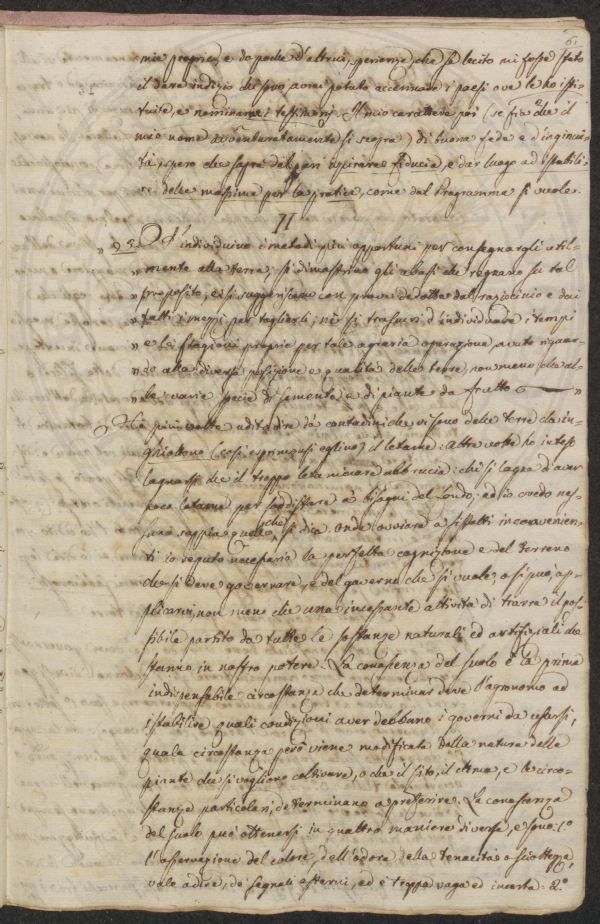 6.
mie proprie, e da poche d'altrui, sperienze che se lecito mi fosse stato
il dare indizio di sono avrei potuto accennare i paesi ove le ho isti-
tuite, e nominarne i testimonj. Il mio carattere poi (se fia che il
mio nome avventuratamente si scopra) di buona fede e d'ingenui-
tà, spero che saprà del pari ispirare fiducia, e dar luogo ad istabili-
re delle massime per la pratica, come dal Programma si vuole.
II
" 2.° S'individuino i metodi più opportuni per consegnargli util-
" mente alla terra; si dimostrino gli abusi che regnano su tal
" proposito, e si suggeriscano con prove dedotte dal raziocinio e dai
" fatti i mezzi per toglierli; nè si trascuri d'individuare i tempi
" e le stagioni proprie per tale agraria operazione, avuto riguar-
" do alla diversa posizione e qualità delle terre, non meno che al-
" le varie specie di sementi, e di piante da frutto "
Ho più volte udito dire da' contadini che vi sono delle terre che in-
ghiottono (così esprimonsi eglino) il letame: altre volte ho inteso
lagnarsi che il troppo letamare abbrucia: chi si lagna d'aver
poco letame per soddisfare a' bisogni del fondo; ed io credo nes-
suno sappia quello che si dica. Onde ovviare a siffatti inconvenien-
ti io reputo necessaria la perfetta cognizione e del terreno
che si deve governare, e del governo che si vuole, o si può ap-
plicarvi, non meno che una incessante attività di trarre il pos-
sibile partito da tutte le sostanze naturali ed artifiziali che
stanno in nostro potere. La conoscenza del suolo è la prima
indispensabile circostanza che determinar deve l'agronomo ad
istabilire quali condizioni aver debbano i governi da usarsi,
quale circostanza però viene modificata dalla natura delle
piante che si vogliono coltivare, o che il sito, il clima, e le circo-
stanze particolari, determinano a preferire. La conoscenza
del suolo può ottenersi in quattro maniere diverse, e sono: 1.°
l'osservazione del colore, dell'odore della tenacità o sciottezza
vale a dire, de' segnali esterni, ed è troppo vaga ed incerta: 2.°